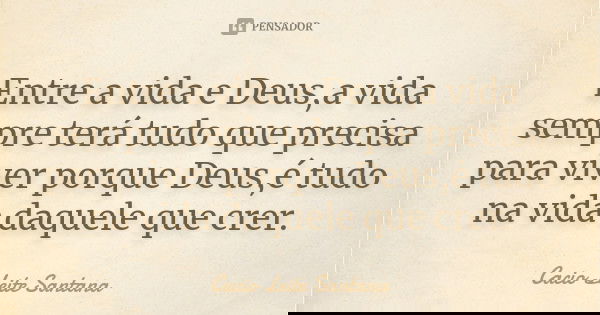 PENSADOR
Entre a vida e Deus,a vida
sempre terá tudo que precisa
para viver porque Deus,é tudo
na vida daquele que crer.
Cacio Leite Santana